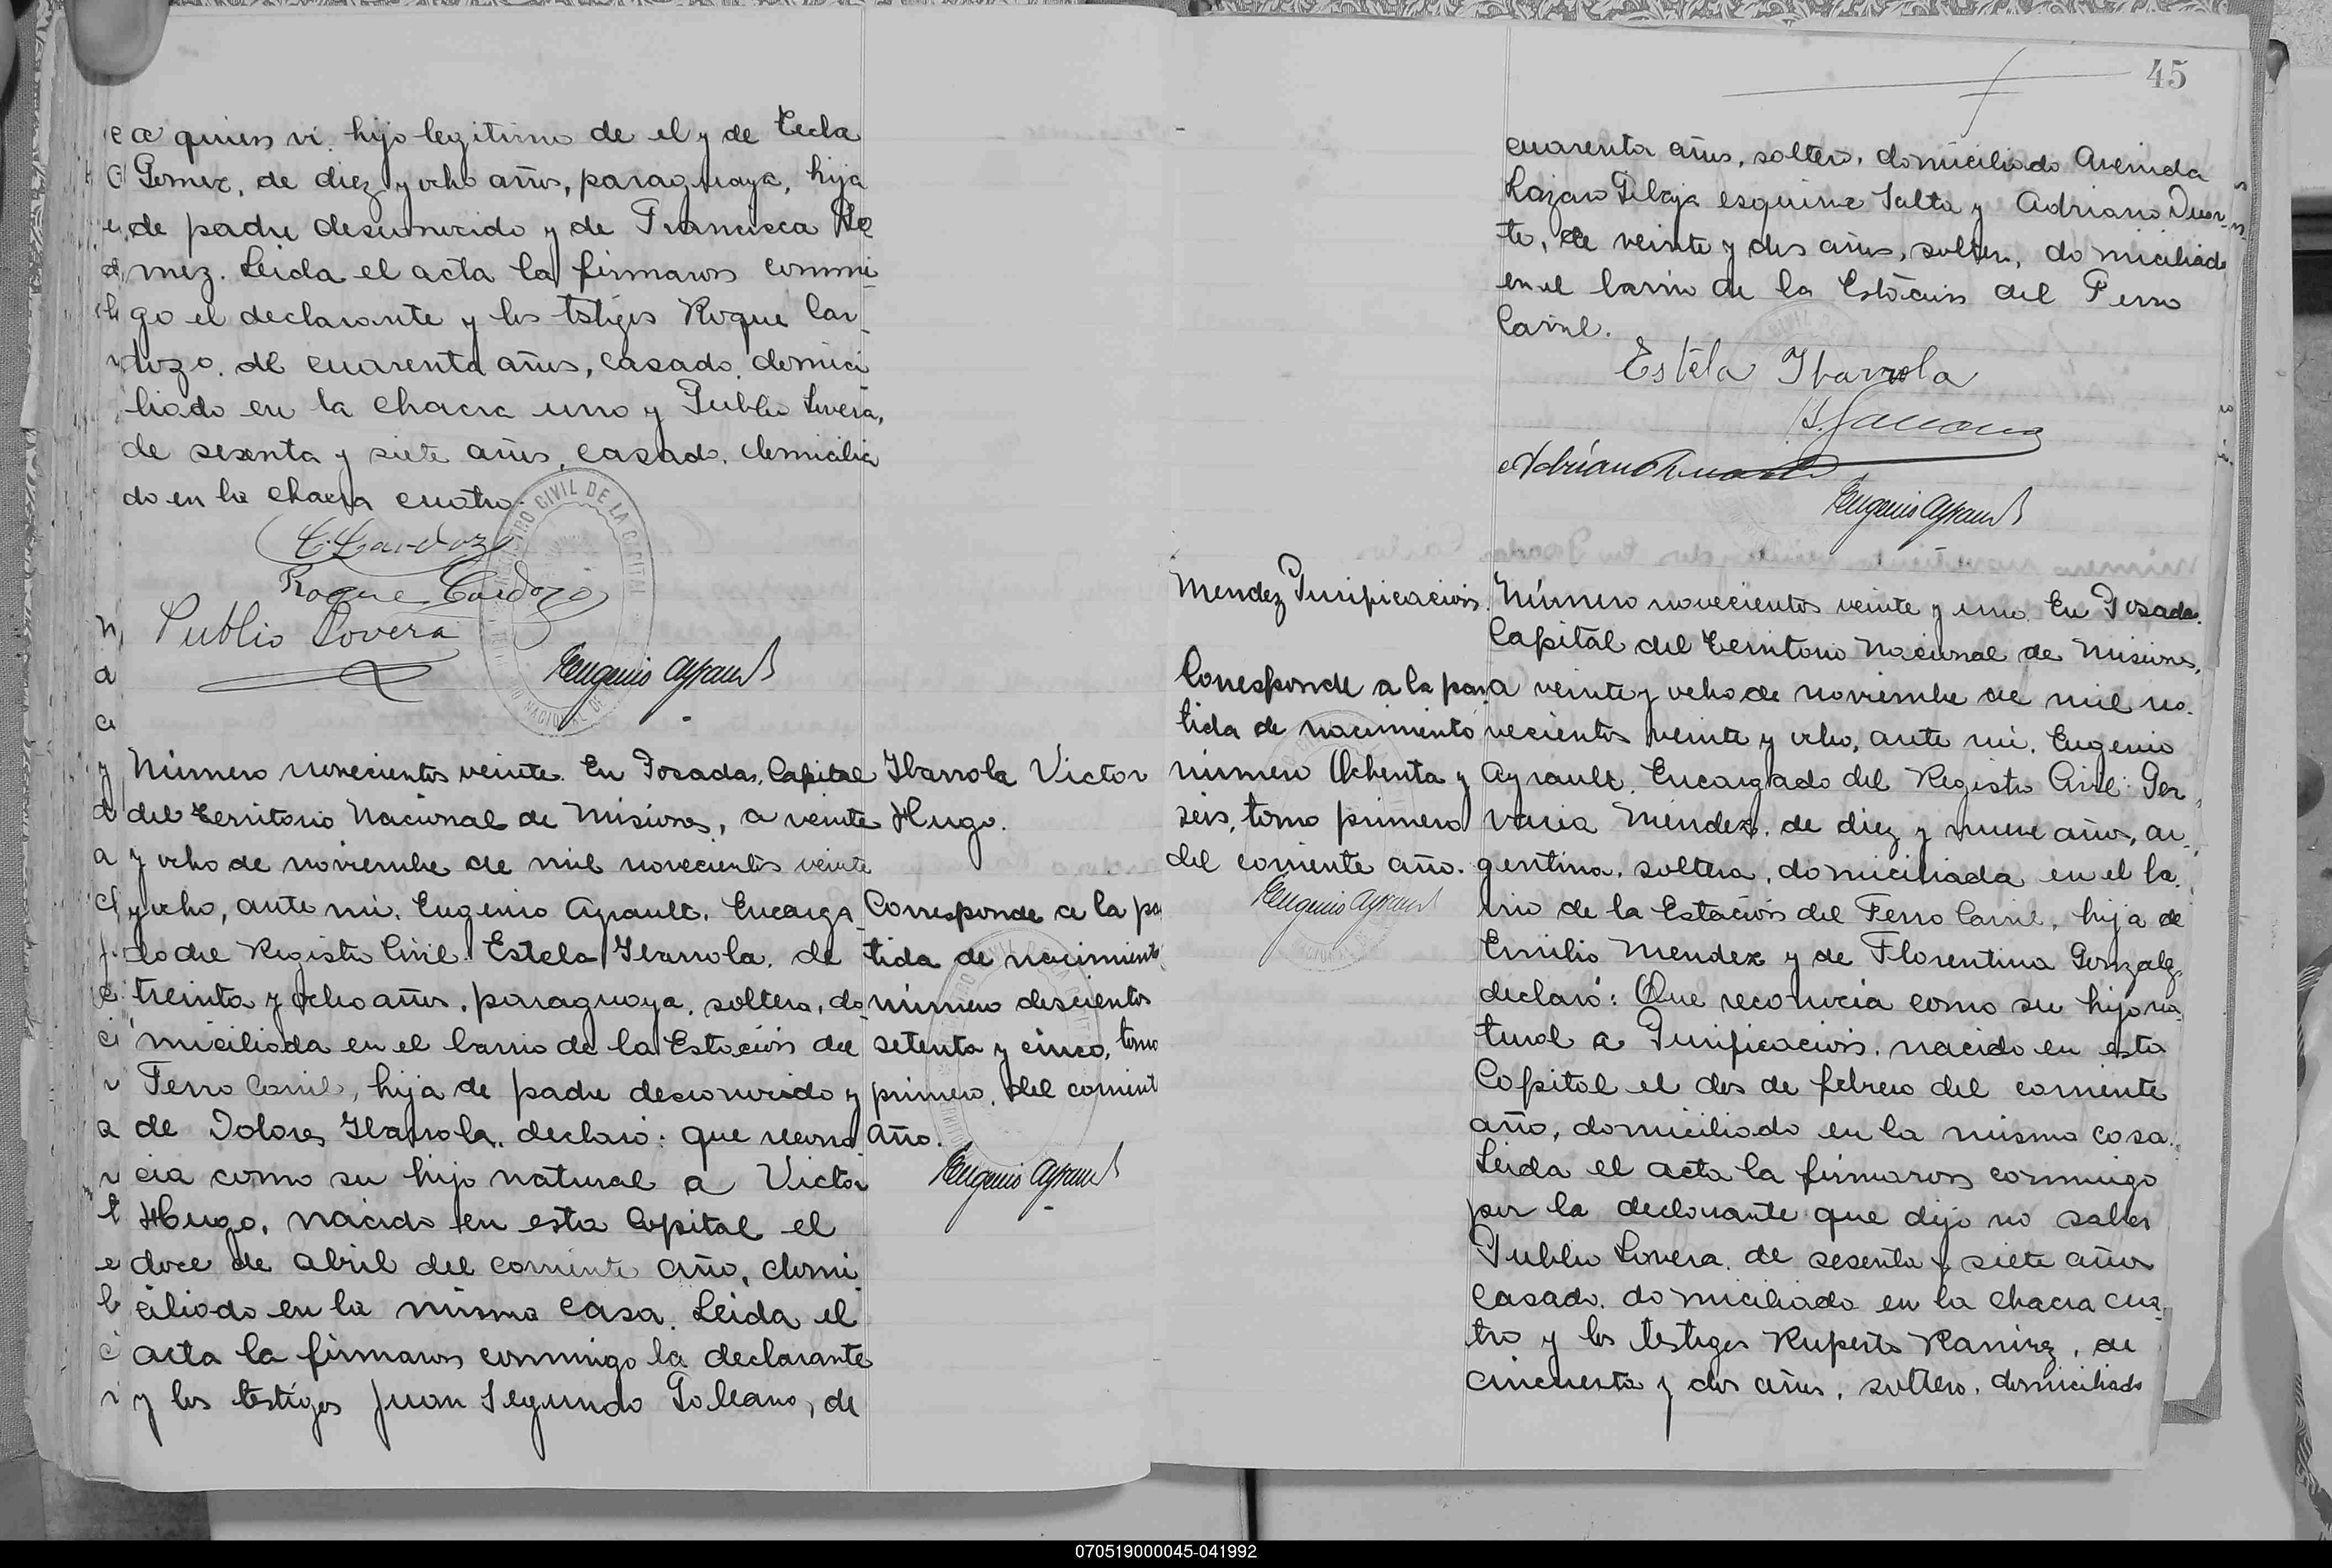 a quien vi. hijo legitimo de el y de Tecla
Gomez, de diez y ocho años, paraguaya, hija
de padre desconocido y de Francisca Go
mez. Leida el acta la firmaron conmi
go el declarante y los testigos Roque Car
dozo. de cuarenta años, casado. domici
liado en la chacra uno y Publio Lovera,
de sesenta y siete años, casado. domicilia
do en la chacra cuatro.
Roque Cardozo
Publio Lovera
Eugenio Ayrault
Número novecientos veinte. En Posadas, Capital
del Territorio Nacional de Misiones, a veinte
y ocho de noviembre de mil novecientos veinte
y ocho, ante mi. Eugenio Ayrault. Encarga
do del Registro Civil. Estela Ibarrola. de
treinta y ocho años. paraguaya. soltera, do
miciliada en el barrio de la Estación del
Ferro Carril, hija de padre desconocido y
de Dolores Ibarrola. declaró: que recono
cia como su hijo natural a Victor
Hugo, nacido en esta Capital el
doce de abril del corriente año, domi
ciliado en la misma casa. Leida el
acta la firmaron conmigo la declarante
y los testigos Juan Segundo Golleano, de
Ibarrola Victor
Hugo.
Corresponde a la par
tida de nacimiento
número doscientos
setenta y cinco, tomo
primero, del corriente
año.
Eugenio Ayrault
45
cuarenta años, soltero, domiciliado Avenida
Lazaro Gibaja esquina Salta y Adriano Duar
te, de veinte y dos años, soltero, domiciliado
en el barrio de la Estación del Ferro
Carril.
Estela Ibarrola
Adriano Duarte
Eugenio Ayrault
Mendez Purificación.
Corresponde a la par
tida de nacimiento
número Ochenta y
seis, tomo primero
del corriente año.
Eugenio Ayrault
Número novecientos veinte y uno. En Posadas.
Capital del Territorio Nacional de Misiones,
a veinte y ocho de noviembre de mil no
vecientos veinte y ocho, ante mi. Eugenio
Ayrault. Encargado del Registro Civil: Ger
vacia Mendez. de diez y nueve años, ar
gentina, soltera, domiciliada en el ba
rrio de la Estación del Ferro Carril, hija de
Emilio Mendez y de Florentina Gonzalez,
declaró: Que reconocia como su hijo na
tural a Purificación. nacido en esta
Capital el dos de febrero del corriente
año, domiciliado en la misma casa.
Leida el acta la firmaron conmigo
por la declarante que dijo no saber
Publio Lovera, de sesenta y siete años
casado. domiciliado en la chacra cua
tro y los testigos Ruperto Ramirez, de
cincuenta y dos años, soltero, domiciliado
070519000045-041992